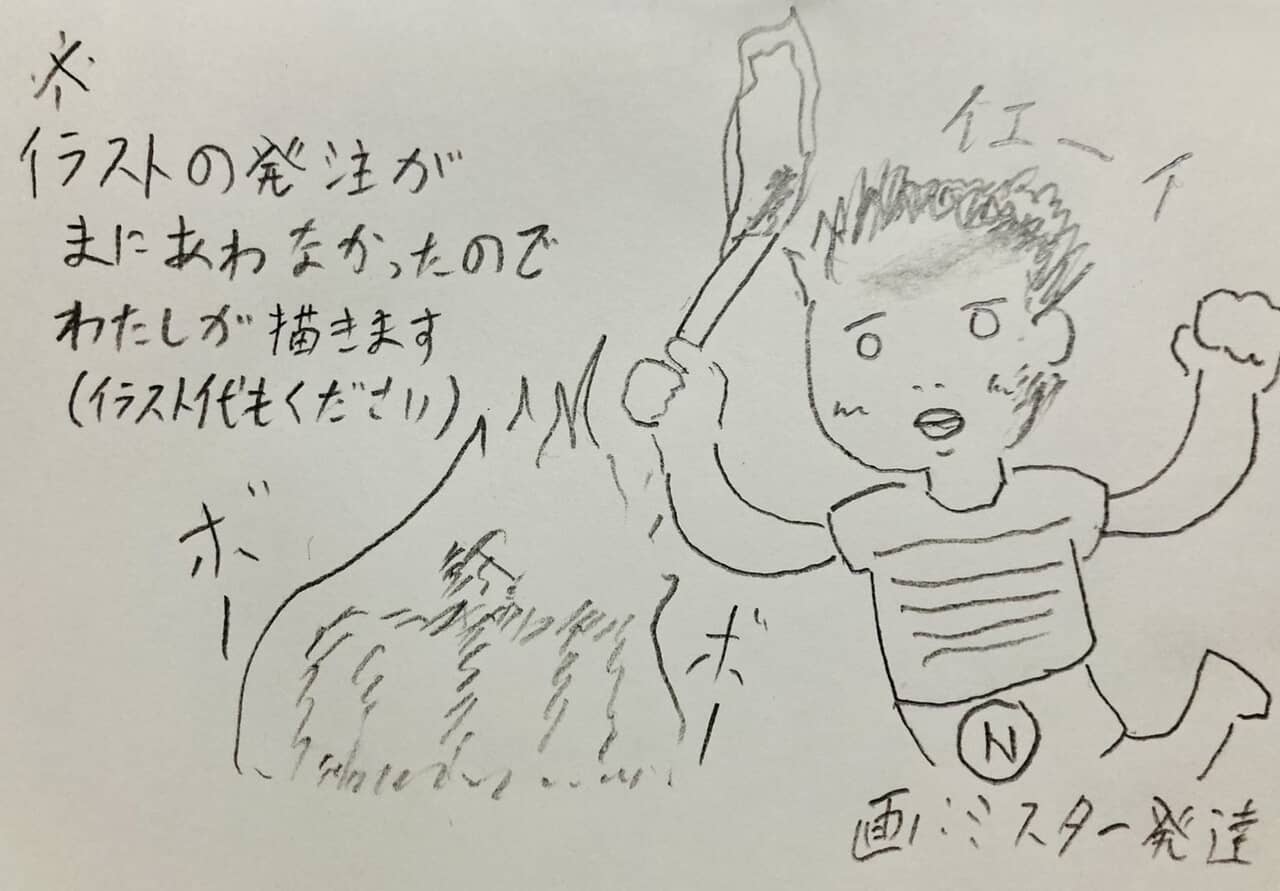 ※
イラストの発注が
まにあわなかったので
わたしが描きます
(イラスト代もください)
イエーイ
ボー
ボー
N
画:ミスター発達